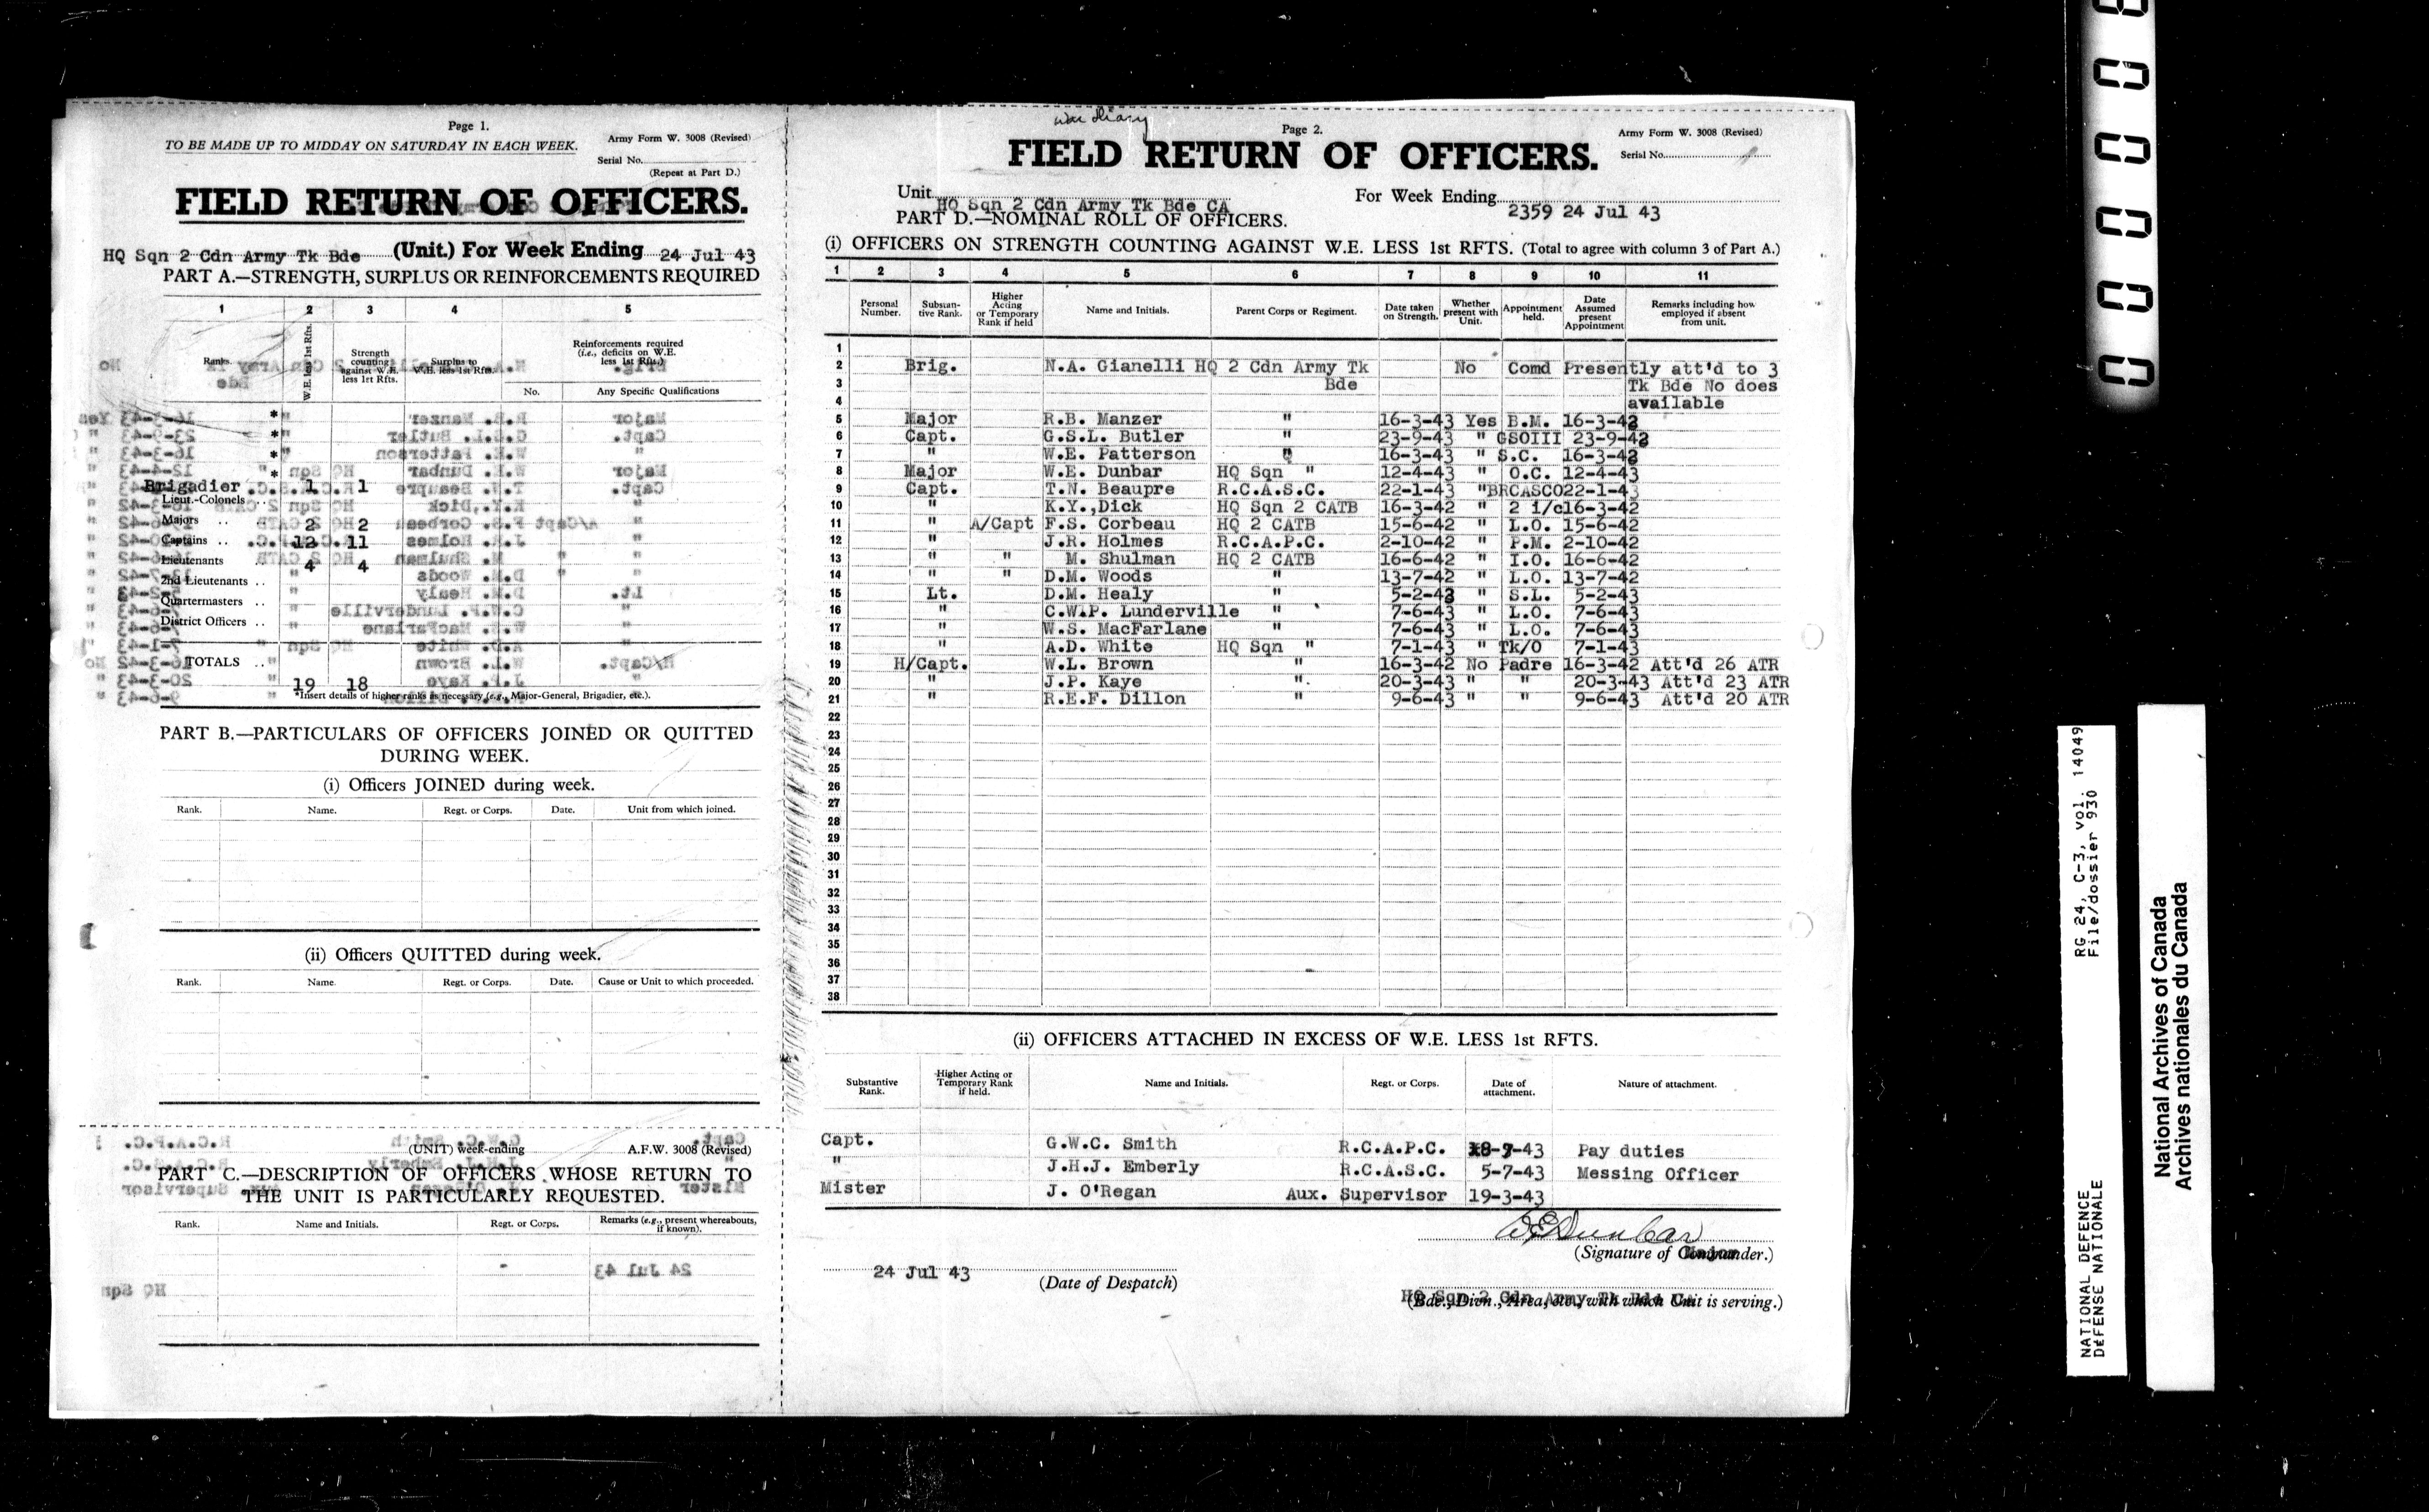 Page 1.
TO BE MADE UP TO MIDDAY ON SATURDAY IN EACH WEEK.
Army Form W. 3008 (Revised)
Serial No.
(Repeat at Part D.)
FIELD RETURN OF OFFICERS.
HQ Sqn 2 Cdn Army Tk Bde (Unit.) For Week Ending 24 Jul 43
PART A.—STRENGTH, SURPLUS OR REINFORCEMENTS REQUIRED
1 2 3 4 5
Ranks. W.E. less 1st Rfts. Strength counting against W.E. less 1st Rfts. Surplus to W.E. less 1st Rfts. Reinforcements required (i.e., deficits on W.E. less 1st Rfts.)
No. Any Specific Qualifications
*
*
*
*
Brigadier 1 1
Lieut.-Colonels ..
Majors .. 2 2
Captains .. 12 11
Lieutenants 4 4
2nd Lieutenants ..
Quartermasters ..
District Officers ..
TOTALS .. 19 18
*Insert details of higher ranks as necessary (e.g., Major-General, Brigadier, etc.).
PART B.—PARTICULARS OF OFFICERS JOINED OR QUITTED
DURING WEEK.
(i) Officers JOINED during week.
Rank. Name. Regt. or Corps. Date. Unit from which joined.
(ii) Officers QUITTED during week.
Rank. Name. Regt. or Corps. Date. Cause or Unit to which proceeded.
(UNIT) week-ending A.F.W. 3008 (Revised)
PART C.—DESCRIPTION OF OFFICERS WHOSE RETURN TO
THE UNIT IS PARTICULARLY REQUESTED.
Rank. Name and Initials. Regt. or Corps. Remarks (e.g., present whereabouts, if known).
war diary
Page 2.
Army Form W. 3008 (Revised)
FIELD RETURN OF OFFICERS.
Serial No.
Unit HQ Sqn 2 Cdn Army Tk Bde CA For Week Ending 2359 24 Jul 43
PART D.—NOMINAL ROLL OF OFFICERS.
(i) OFFICERS ON STRENGTH COUNTING AGAINST W.E. LESS 1st RFTS. (Total to agree with column 3 of Part A.)
1 2 3 4 5 6 7 8 9 10 11
Personal Number. Substantive Rank. Higher Acting or Temporary Rank if held Name and Initials. Parent Corps or Regiment. Date taken on Strength. Whether present with Unit. Appointment held. Date Assumed present Appointment Remarks including how employed if absent from unit.
1
2 Brig. N.A. Gianelli HQ 2 Cdn Army Tk No Comd Presently att'd to 3
3 Bde Tk Bde No does
4 available
5 Major R.B. Manzer " 16-3-43 Yes B.M. 16-3-42
6 Capt. G.S.L. Butler " 23-9-43 " GSOIII 23-9-42
7 " W.E. Patterson " 16-3-43 " S.C. 16-3-42
8 Major W.E. Dunbar HQ Sqn " 12-4-43 " O.C. 12-4-43
9 Capt. T.N. Beaupre R.C.A.S.C. 22-1-43 " BRCASCO 22-1-43
10 " K.Y.,Dick HQ Sqn 2 CATB 16-3-42 " 2 i/c 16-3-42
11 " A/Capt F.S. Corbeau HQ 2 CATB 15-6-42 " L.O. 15-6-42
12 " J.R. Holmes R.C.A.P.C. 2-10-42 " P.M. 2-10-42
13 " " M. Shulman HQ 2 CATB 16-6-42 " I.O. 16-6-42
14 " " D.M. Woods " 13-7-42 " L.O. 13-7-42
15 Lt. D.M. Healy " 5-2-43 " S.L. 5-2-43
16 " C.W.P. Lunderville " 7-6-43 " L.O. 7-6-43
17 " W.S. MacFarlane " 7-6-43 " L.O. 7-6-43
18 " A.D. White HQ Sqn " 7-1-43 " Tk/O 7-1-43
19 H/Capt. W.L. Brown " 16-3-42 No Padre 16-3-42 Att'd 26 ATR
20 " J.P. Kaye " 20-3-43 " " 20-3-43 Att'd 23 ATR
21 " R.E.F. Dillon " 9-6-43 " " 9-6-43 Att'd 20 ATR
22
23
24
25
26
27
28
29
30
31
32
33
34
35
36
37
38
(ii) OFFICERS ATTACHED IN EXCESS OF W.E. LESS 1st RFTS.
Substantive Rank. Higher Acting or Temporary Rank if held. Name and Initials. Regt. or Corps. Date of attachment. Nature of attachment.
Capt. G.W.C. Smith R.C.A.P.C. 18-7-43 Pay duties
" J.H.J. Emberly R.C.A.S.C. 5-7-43 Messing Officer
Mister J. O'Regan Aux. Supervisor 19-3-43
WEDunbar
(Signature of Commander.)
Major
24 Jul 43
(Date of Despatch)
HQ Sqn 2 Cdn Army Tk Bde CA
(Bde., Divn., Area, etc., with which Unit is serving.)
NATIONAL DEFENCE RG 24, C-3, vol. 14049
DÉFENSE NATIONALE File/dossier 930
National Archives of Canada
Archives nationales du Canada